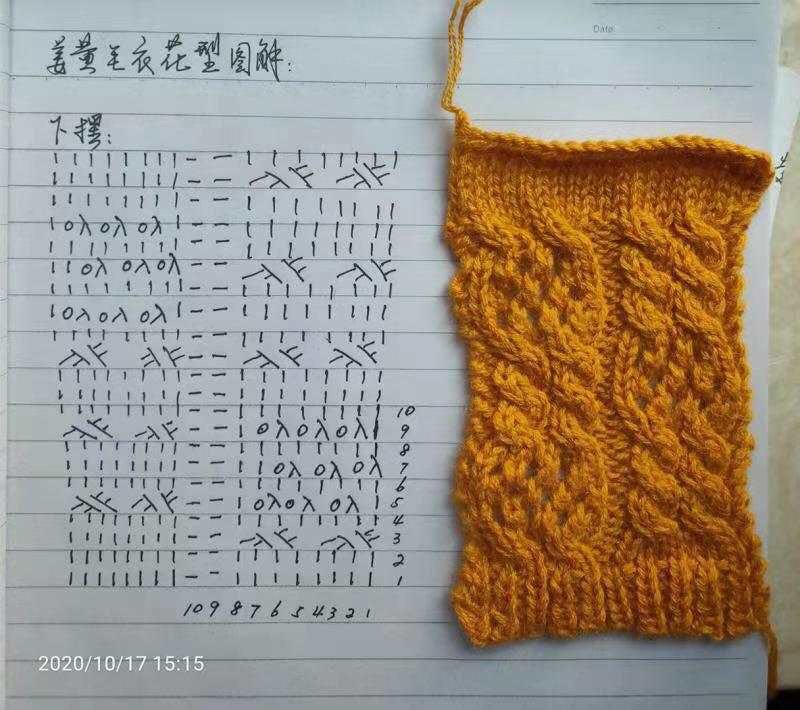 Date
姜黄毛衣花型图解:
下摆:
10
9
8
7
6
5
4
3
2
1
10 9 8 7 6 5 4 3 2 1
2020/10/17 15:15